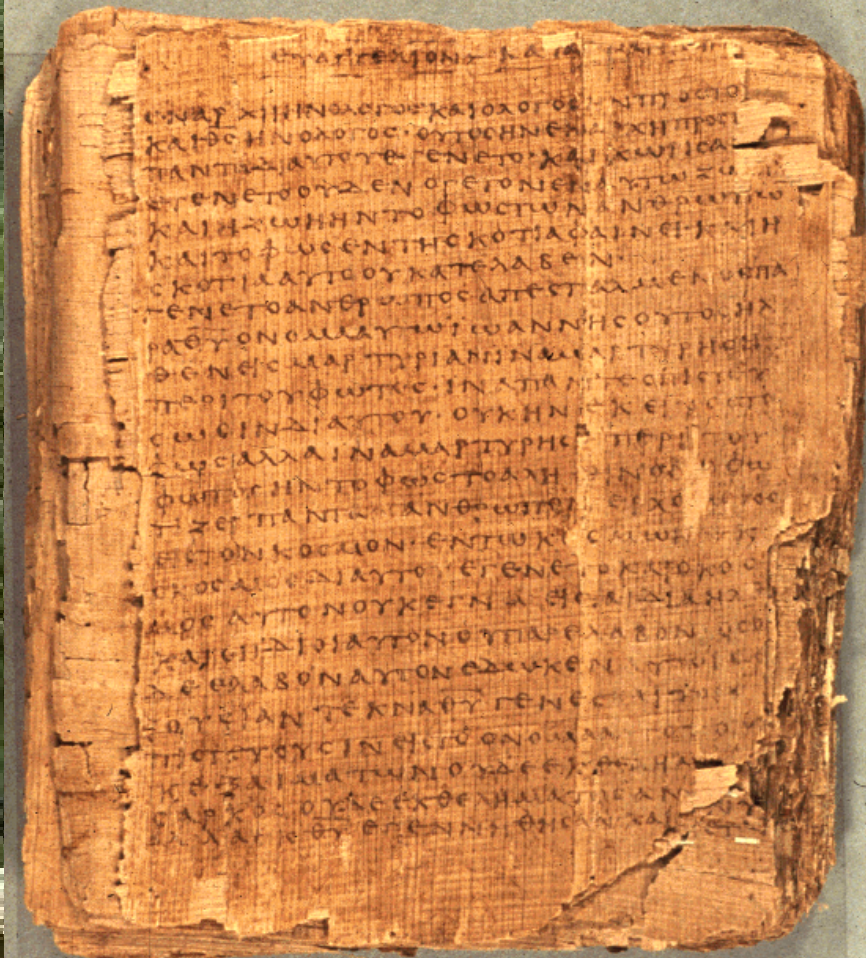 ΕΥΑΓΓΕΛΙΟΝ ΚΑΤΑ
ΕΝΑΡΧΗΗΝΟΛΟΓΟϹΚΑΙΟΛΟΓΟϹΗΝΠΡΟϹΤΟ
ΚΑΙΘϹΗΝΟΛΟΓΟϹ·ΟΥΤΟϹΗΝΕΝΑΡΧΗΠΡΟϹ
ΠΑΝΤΑΔΙΑΥΤΟΥΕΓΕΝΕΤΟ·ΚΑΙΧΩΡΙϹΑ
ΕΓΕΝΕΤΟΟΥΔΕΝΟΓΕΓΟΝΕΝΕΝΑΥΤΩΖΩ
ΚΑΙΗΖΩΗΗΝΤΟΦΩϹΤΩΝΑΝΘΡΩΠΩ
ΚΑΙΤΟΦΩϹΕΝΤΗϹΚΟΤΙΑΦΑΙΝΕΙ·ΚΑΙΗ
ϹΚΟΤΙΑΑΥΤΟΟΥΚΑΤΕΛΑΒΕΝ·
ΕΓΕΝΕΤΟΑΝΘΡΩΠΟϹΑΠΕϹΤΑΛΜΕΝΟϹΠΑ
ΡΑΘΥΟΝΟΜΑΑΥΤΩΙΩΑΝΝΗϹΟΥΤΟϹΗΛ
ΘΕΝΕΙϹΜΑΡΤΥΡΙΑΝΙΝΑΜΑΡΤΥΡΗϹΗ
ΠΕΡΙΤΟΥΦΩΤΟϹ·ΙΝΑΠΑΝΤΕϹΠΙϹΤΕΥ
ϹΩϹΙΝΔΙΑΥΤΟΥ·ΟΥΚΗΝΕΚΕΙΝΟϹΤΟ
ΦΩϹΑΛΛΑΙΝΑΜΑΡΤΥΡΗϹΗΠΕΡΙΤΟΥ
ΦΩΤΟϹΗΝΤΟΦΩϹΤΟΑΛΗΘΙΝΟΝΟΦΩ
ΤΙΖΕΙΠΑΝΤΑΑΝΘΡΩΠΟΝΕΡΧΟΜΕΝΟ
ΕΙϹΤΟΝΚΟϹΜΟΝ·ΕΝΤΩΚΟϹΜΩΗΝΚΑΙ
ΟΚΟϹΜΟϹΔΙΑΥΤΟΥΕΓΕΝΕΤΟΚΑΙΟΚΟϹ
ΜΟϹΑΥΤΟΝΟΥΚΕΓΝΩΕΙϹΤΑΙΔΙΑΗΛ
ΚΑΙΟΙΙΔΙΟΙΑΥΤΟΝΟΥΠΑΡΕΛΑΒΟΝ·ΟϹΟ
ΔΕΕΛΑΒΟΝΑΥΤΟΝΕΔΩΚΕΝΑΥΤΟΙϹΕ
ΞΟΥϹΙΑΝΤΕΚΝΑΘΥΓΕΝΕϹΘΑΙΤΟΙϹ
ΠΙϹΤΕΥΟΥϹΙΝΕΙϹΤΟΟΝΟΜΑΑΥΤΟΥΟΙ
ΚΕΞΑΙΜΑΤΩΝΟΥΔΕΕΚΘΕΛΗΜΑ
ϹΑΡΚΟϹΟΥΔΕΕΚΘΕΛΗΜΑΤΟϹΑΝ
ΑΛΛΑΕΚΘΥΕΓΕΝΝΗΘΗϹΑΝΚΑΙ